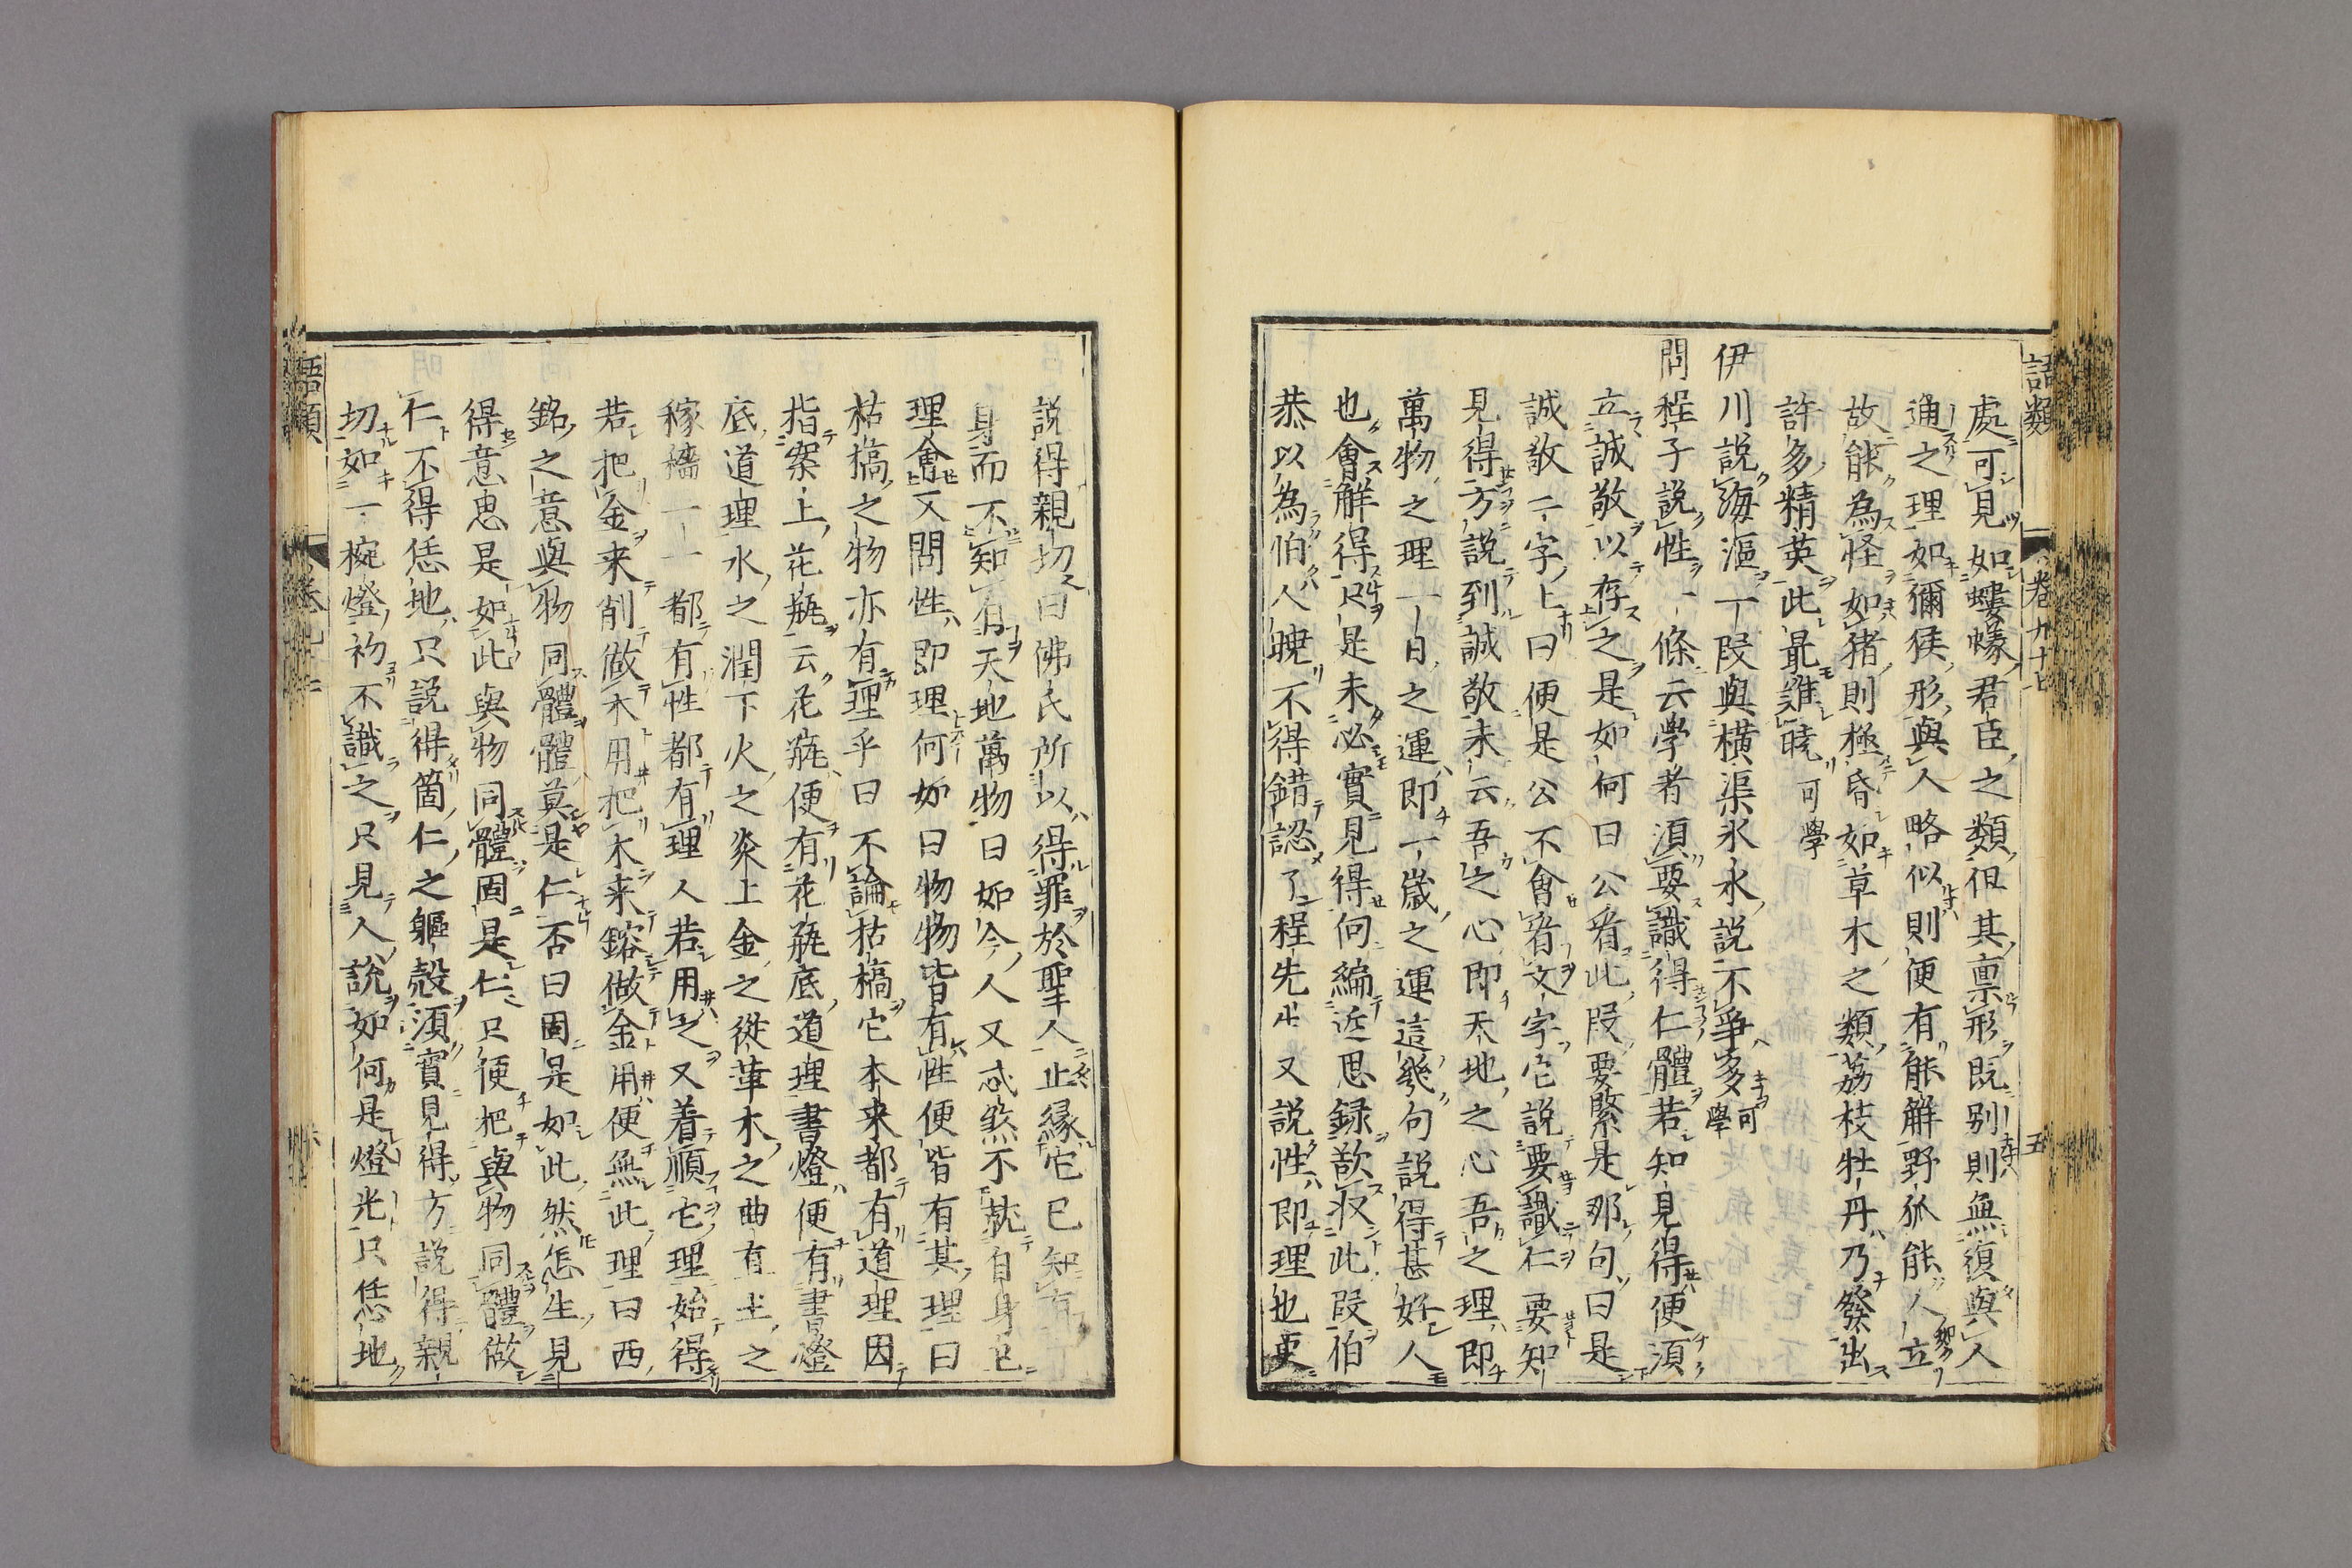 語類
卷九十七
五
處可見如螻蟻君臣之類但其禀形既别則無復與人
通之理如獼猴形與人略似則便有能解野狐能人立
故能為怪如猪則極昏如草木之類荔枝牡丹乃發出
許多精英此最難曉可學
伊川說海漚一段與橫渠氷水說不爭多可學
問程子說性一條云學者須要識得仁體若知見得便須
立誠敬以存之是如何曰公看此段要緊是那句曰是
誠敬二字上曰便是公不會看文字它說要識仁要知
見得方說到誠敬末云吾之心即天地之心吾之理即
萬物之理一日之運即一歲之運這幾句說得甚好人
也會解得只是未必實見得向編近思録欲収此段伯
恭以為怕人曉不得錯認了程先生又說性即理也更
說得親切曰佛氏所以得罪於聖人止緣它已知有
身而不知有天地萬物曰如今人又忒煞不就自身己
理會又問性即理何如曰物物皆有性便皆有其理曰
枯槁之物亦有理乎曰不論枯槁它本来都有道理因
指案上花瓶云花瓶便有花瓶底道理書燈便有書燈
底道理水之潤下火之炎上金之從革木之曲直土之
稼穡一一都有性都有理人若用之又着順它理始得
若把金来削做木用把木来鎔做金用便無此理曰西
銘之意與物同體體莫是仁否曰固是如此然怎生見
得意思是如此與物同體固是仁只便把與物同體做
仁不得恁地只說得箇仁之軀殼須實見得方說得親
切如一椀燈初不識之只見人說如何是燈光只恁地
語類
卷九十